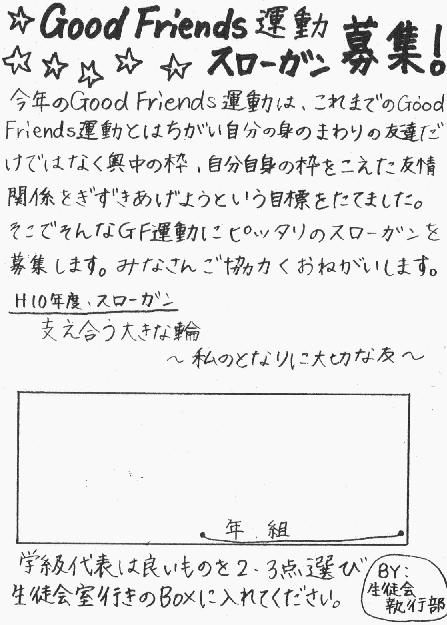 ☆Good Friends 運動
☆☆☆☆☆ スローガン 募集!
今年のGood Friends運動は、これまでのGood
Friends運動とはちがい自分の身のまわりの友達だ
けではなく興中の枠、自分自身の枠をこえた友情
関係をぎずきあげようという目標をたてました。
そこでそんなGF運動にピッタリのスローガンを
募集します。みなさんご協力くおねがいします。
H10年度、スローガン
支え合う大きな輪
～私のとなりに大切な友～
年 組
学級代表は良いものを2・3点選び
生徒会室行きのBoxに入れてください。
BY:
生徒会
執行部